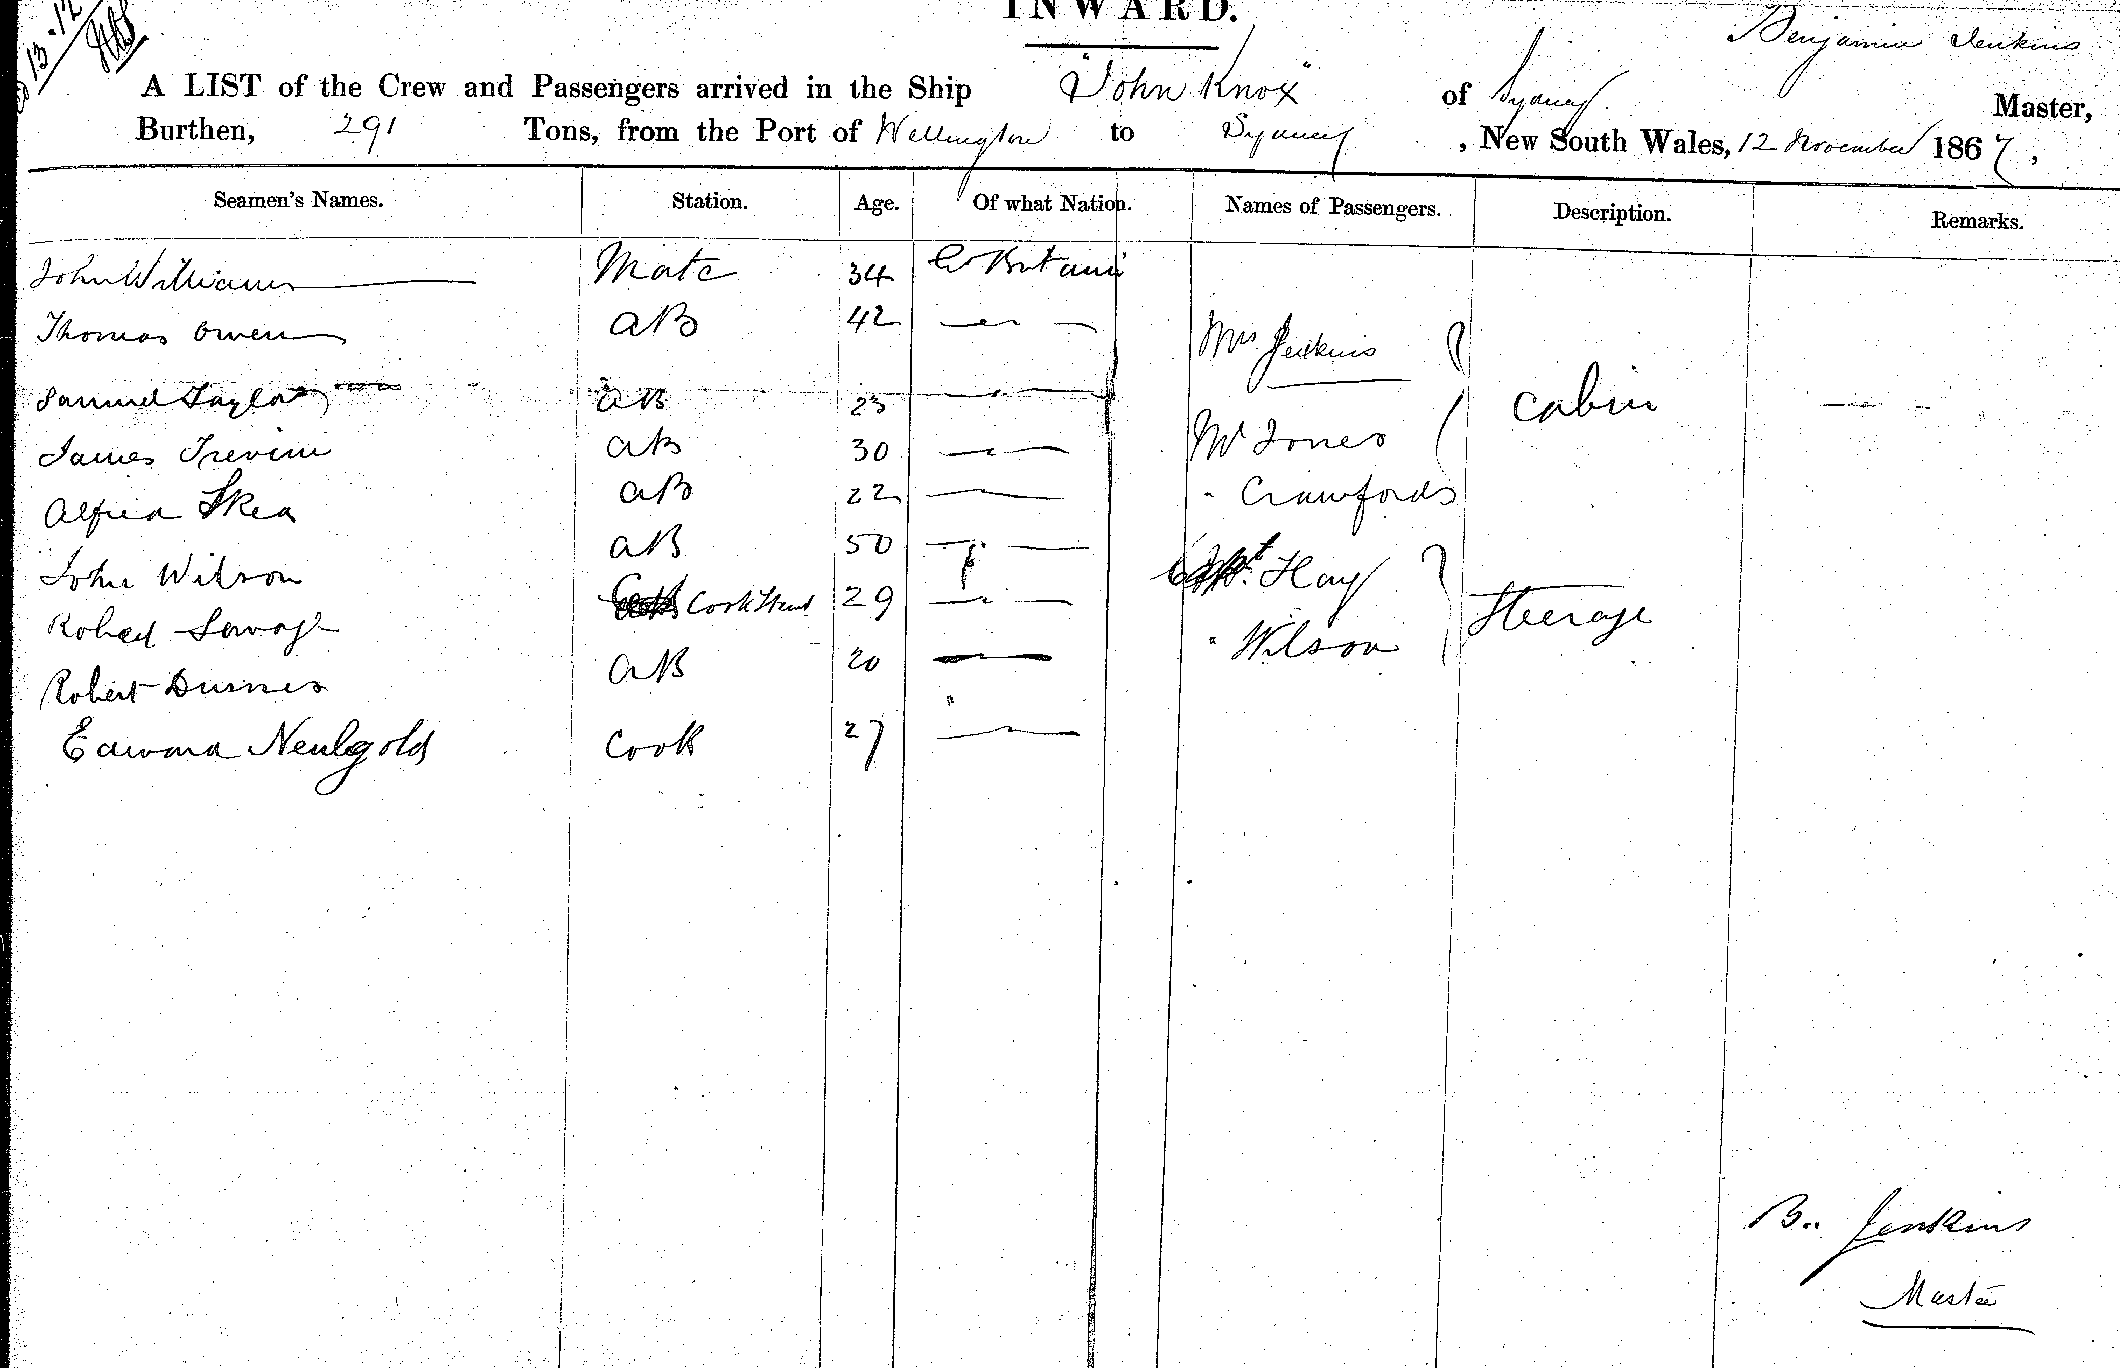 INWARD.
Benjamin Jenkins
A LIST of the Crew and Passengers arrived in the Ship "John Knox" of Sydney Master,
Burthen, 291 Tons, from the Port of Wellington to Sydney, New South Wales, 12 November 1867,
Seamen's Names. Station. Age. Of what Nation. Names of Passengers. Description. Remarks.
John Williams Mate 34 Gt Britain
Thomas Owen AB 42
Mrs Jenkins
Samuel Taylor AB 23
Cabin
James Trevini AB 30 Mr Jones
Alfred Skea AB 22 " Crawfords
John Wilson AB 50 Capt. Hay
Robert Savage Cook Stewd 29 Steerage
" Wilson
Robert AB 20
Edward Cook 27
B. Jenkins
Master